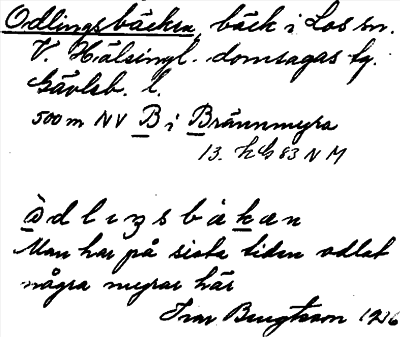 Odlingsbäcken, bäck i Los sn.
V. Hälsingl. domsagas tg.
Gävleb. l.
500 m NV B i Brännmyra
13. h G 83 N M
òdlıŋsbäkæn
Man har på sista tiden odlat
några myrar här
Ivar Bengtsson 1936